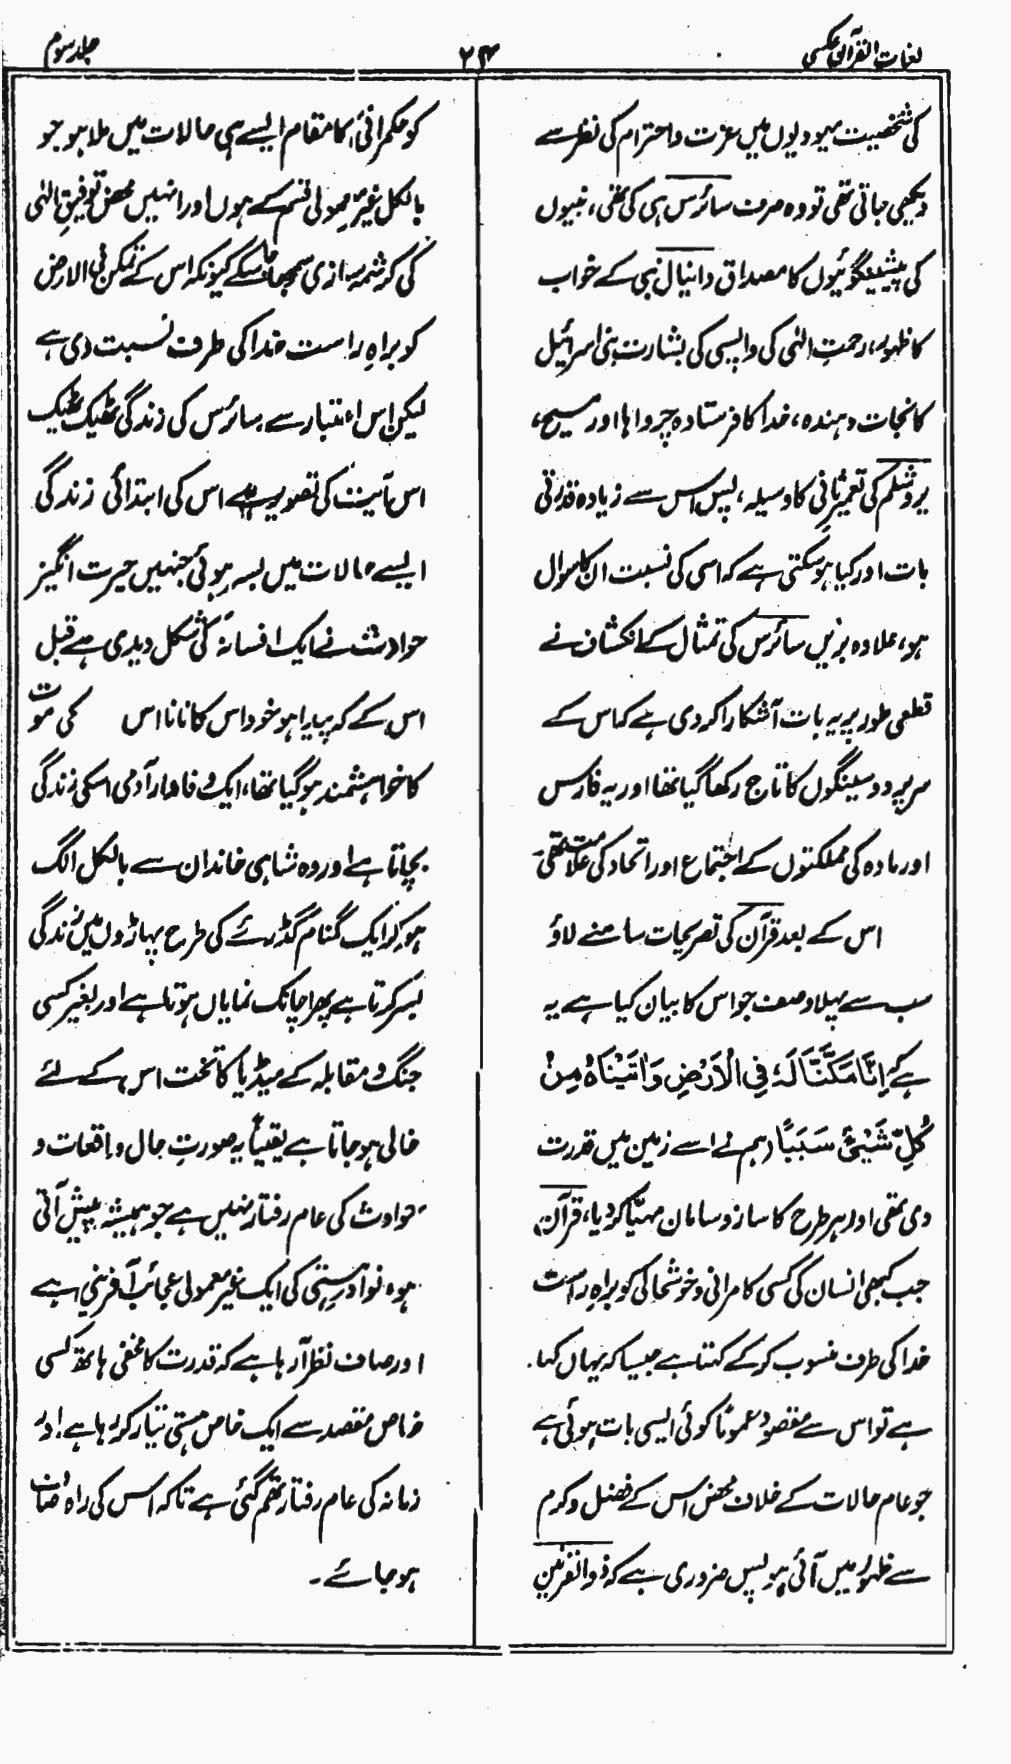 لغات القرآن عکسی
۲۴
جلد سوم
کی شخصیت یہودیوں میں عزت و احترام کی نظر سے
دیکھی جاتی تھی تو وہ صرف سائرس ہی کی تھی، نبیوں
کی پیشینگوئیوں کا مصداق دانیال نبی کے خواب
کا ظہور، رحمتِ الٰہی کی واپسی کی بشارت بنی اسرائیل
کا نجات دہندہ، خدا کا فرستادہ چرواہا اور مسیح،
یروشلم کی تعمیرِ ثانی کا وسیلہ، پس اس سے زیادہ قدرتی
بات اور کیا ہو سکتی ہے کہ اسی کی نسبت ان کا سوال
ہو، علاوہ بریں سائرس کی تمثال کے انکشاف نے
قطعی طور پر یہ بات آشکارا کر دی ہے کہ اس کے
سر پر دو سینگوں کا تاج رکھا گیا تھا اور یہ فارس
اور مادہ کی مملکتوں کے اجتماع اور اتحاد کی علامت تھی
اس کے بعد قرآن کی تصریحات سامنے لاؤ
سب سے پہلا وصف جو اس کا بیان کیا ہے یہ
ہے کہ اِنَّا مَكَّنَّا لَهٗ فِي الْاَرْضِ وَاٰتَيْنَاهُ مِنْ
كُلِّ شَيْئٍ سَبَبًا (ہم نے اسے زمین میں قدرت
دی تھی اور ہر طرح کا ساز و سامان مہیّا کر دیا، قرآن
جب کبھی انسان کی کسی کامرانی و خوشحالی کو براہِ راست
خدا کی طرف منسوب کر کے کہتا ہے جیسا کہ یہاں کہا
ہے تو اس سے مقصود عموماً کوئی ایسی بات ہوئی ہے
جو عام حالات کے خلاف محض اس کے فضل و کرم
سے ظہور میں آئی ہو پس ضروری ہے کہ ذوالقرنین
کو حکمرانی کا مقام ایسے ہی حالات میں ملا ہو جو
بالکل غیر معمولی قسم کے ہوں اور انہیں محض توفیقِ الٰہی
کی کرشمہ سازی سمجھا جا سکے کیونکہ اس کے تمکن فی الارض
کو براہِ راست خدا کی طرف نسبت دی ہے
لیکن اس اعتبار سے سائرس کی زندگی ٹھیک ٹھیک
اس آیت کی تصویر ہے اس کی ابتدائی زندگی
ایسے حالات میں بسر ہوئی جنہیں حیرت انگیز
حوادث نے ایک افسانہ کی شکل دیدی ہے قبل
اس کے کہ پیدا ہو خود اس کا نانا اس کی موت
کا خواہشمند ہو گیا تھا، ایک وفادار آدمی اسکی زندگی
بچاتا ہے اور وہ شاہی خاندان سے بالکل الگ
ہو کر ایک گمنام گڈرئے کی طرح پہاڑوں میں زندگی
بسر کرتا ہے پھر اچانک نمایاں ہوتا ہے اور بغیر کسی
جنگ و مقابلہ کے میڈیا کا تخت اس کے لئے
خالی ہو جاتا ہے یقیناً یہ صورتِ حال واقعات و
حوادث کی عام رفتار نہیں ہے جو ہمیشہ پیش آتی
ہو، نوادرِ ہستی کی ایک غیر معمولی عجائب آفرینی ہے
اور صاف نظر آ رہا ہے کہ قدرت کا مخفی ہاتھ کسی
خاص مقصد سے ایک خاص ہستی تیار کر رہا ہے اور
زمانہ کی عام رفتار تھم گئی ہے تاکہ اس کی راہ صاف
ہو جائے ۔